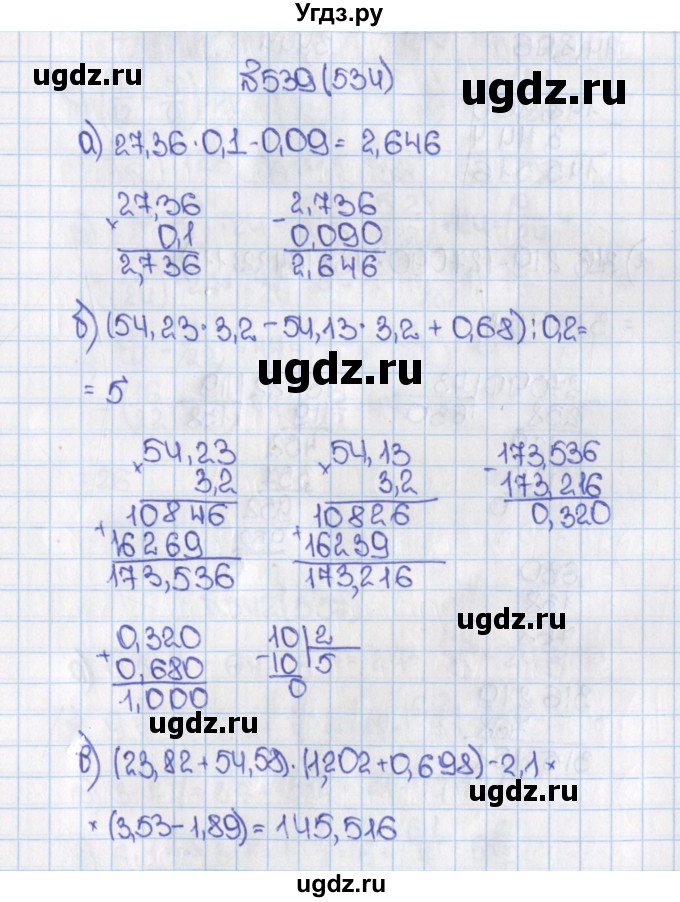 Угдз.ру
ugdz.ru
№539(534)
ugdz.ru
а) 27,36·0,1-0,09 = 2,646
27,36
× 0,1
2,736
- 2,736
0,090
2,646
б) (54,23·3,2-54,13·3,2+0,68):0,2=
ugdz.ru
= 5
× 54,23
3,2
+ 10846
16269
173,536
× 54,13
3,2
+ 10826
16239
173,216
- 173,536
173,216
0,320
ugdz.ru
+ 0,320
0,680
1,000
10 | 2
- 10 | 5
0
ugdz.ru
в) (23,82+54,58)·(1,202+0,698)-2,1×
ugdz.ru
× (3,53-1,89) = 145,516
ugdz.ru